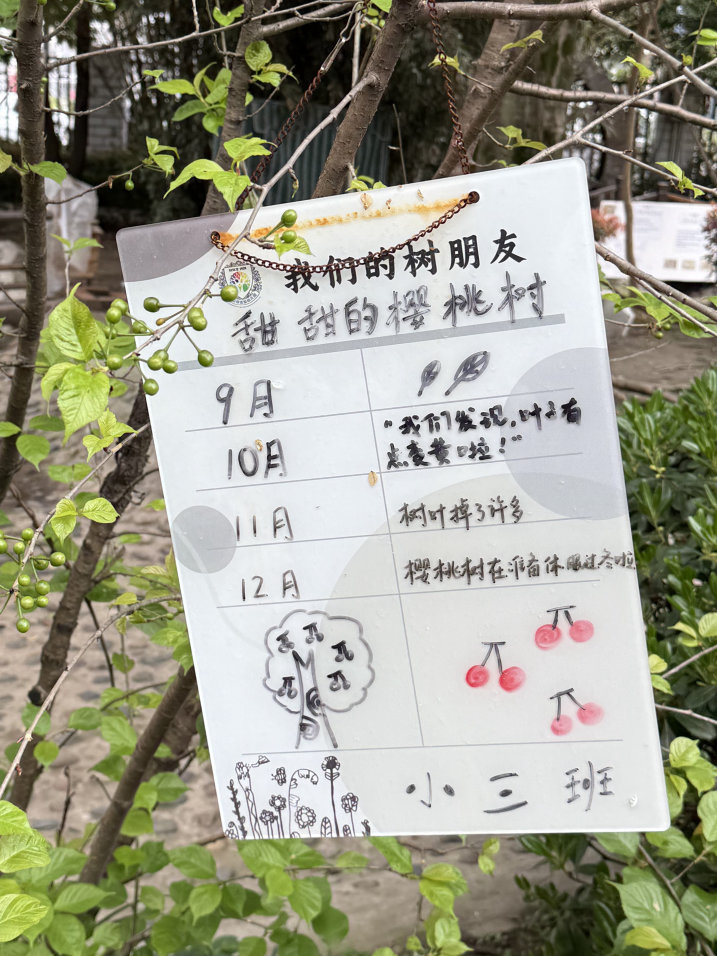 我们的树朋友
甜甜的樱桃树
9月
10月
“我们发现,叶子有
点变黄啦!”
11月
树叶掉了许多
12月
樱桃树在准备休眠过冬啦
小三班